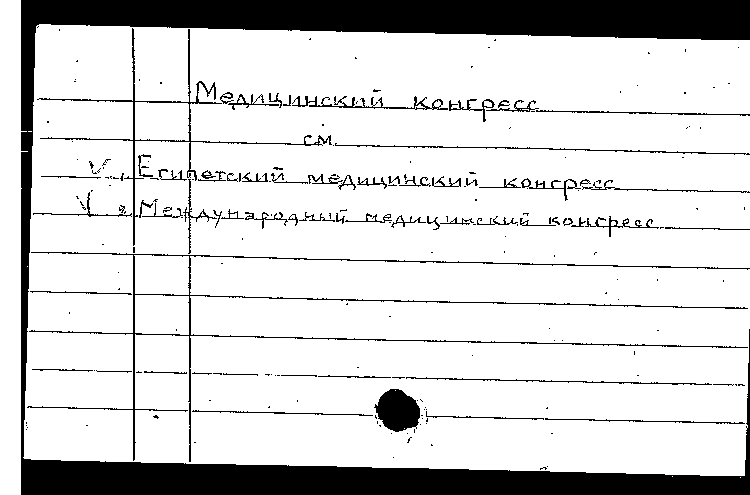 Медицинский конгресс
см.
V 1. Египетский медицинский конгресс
V 2. Международный медицинский конгресс